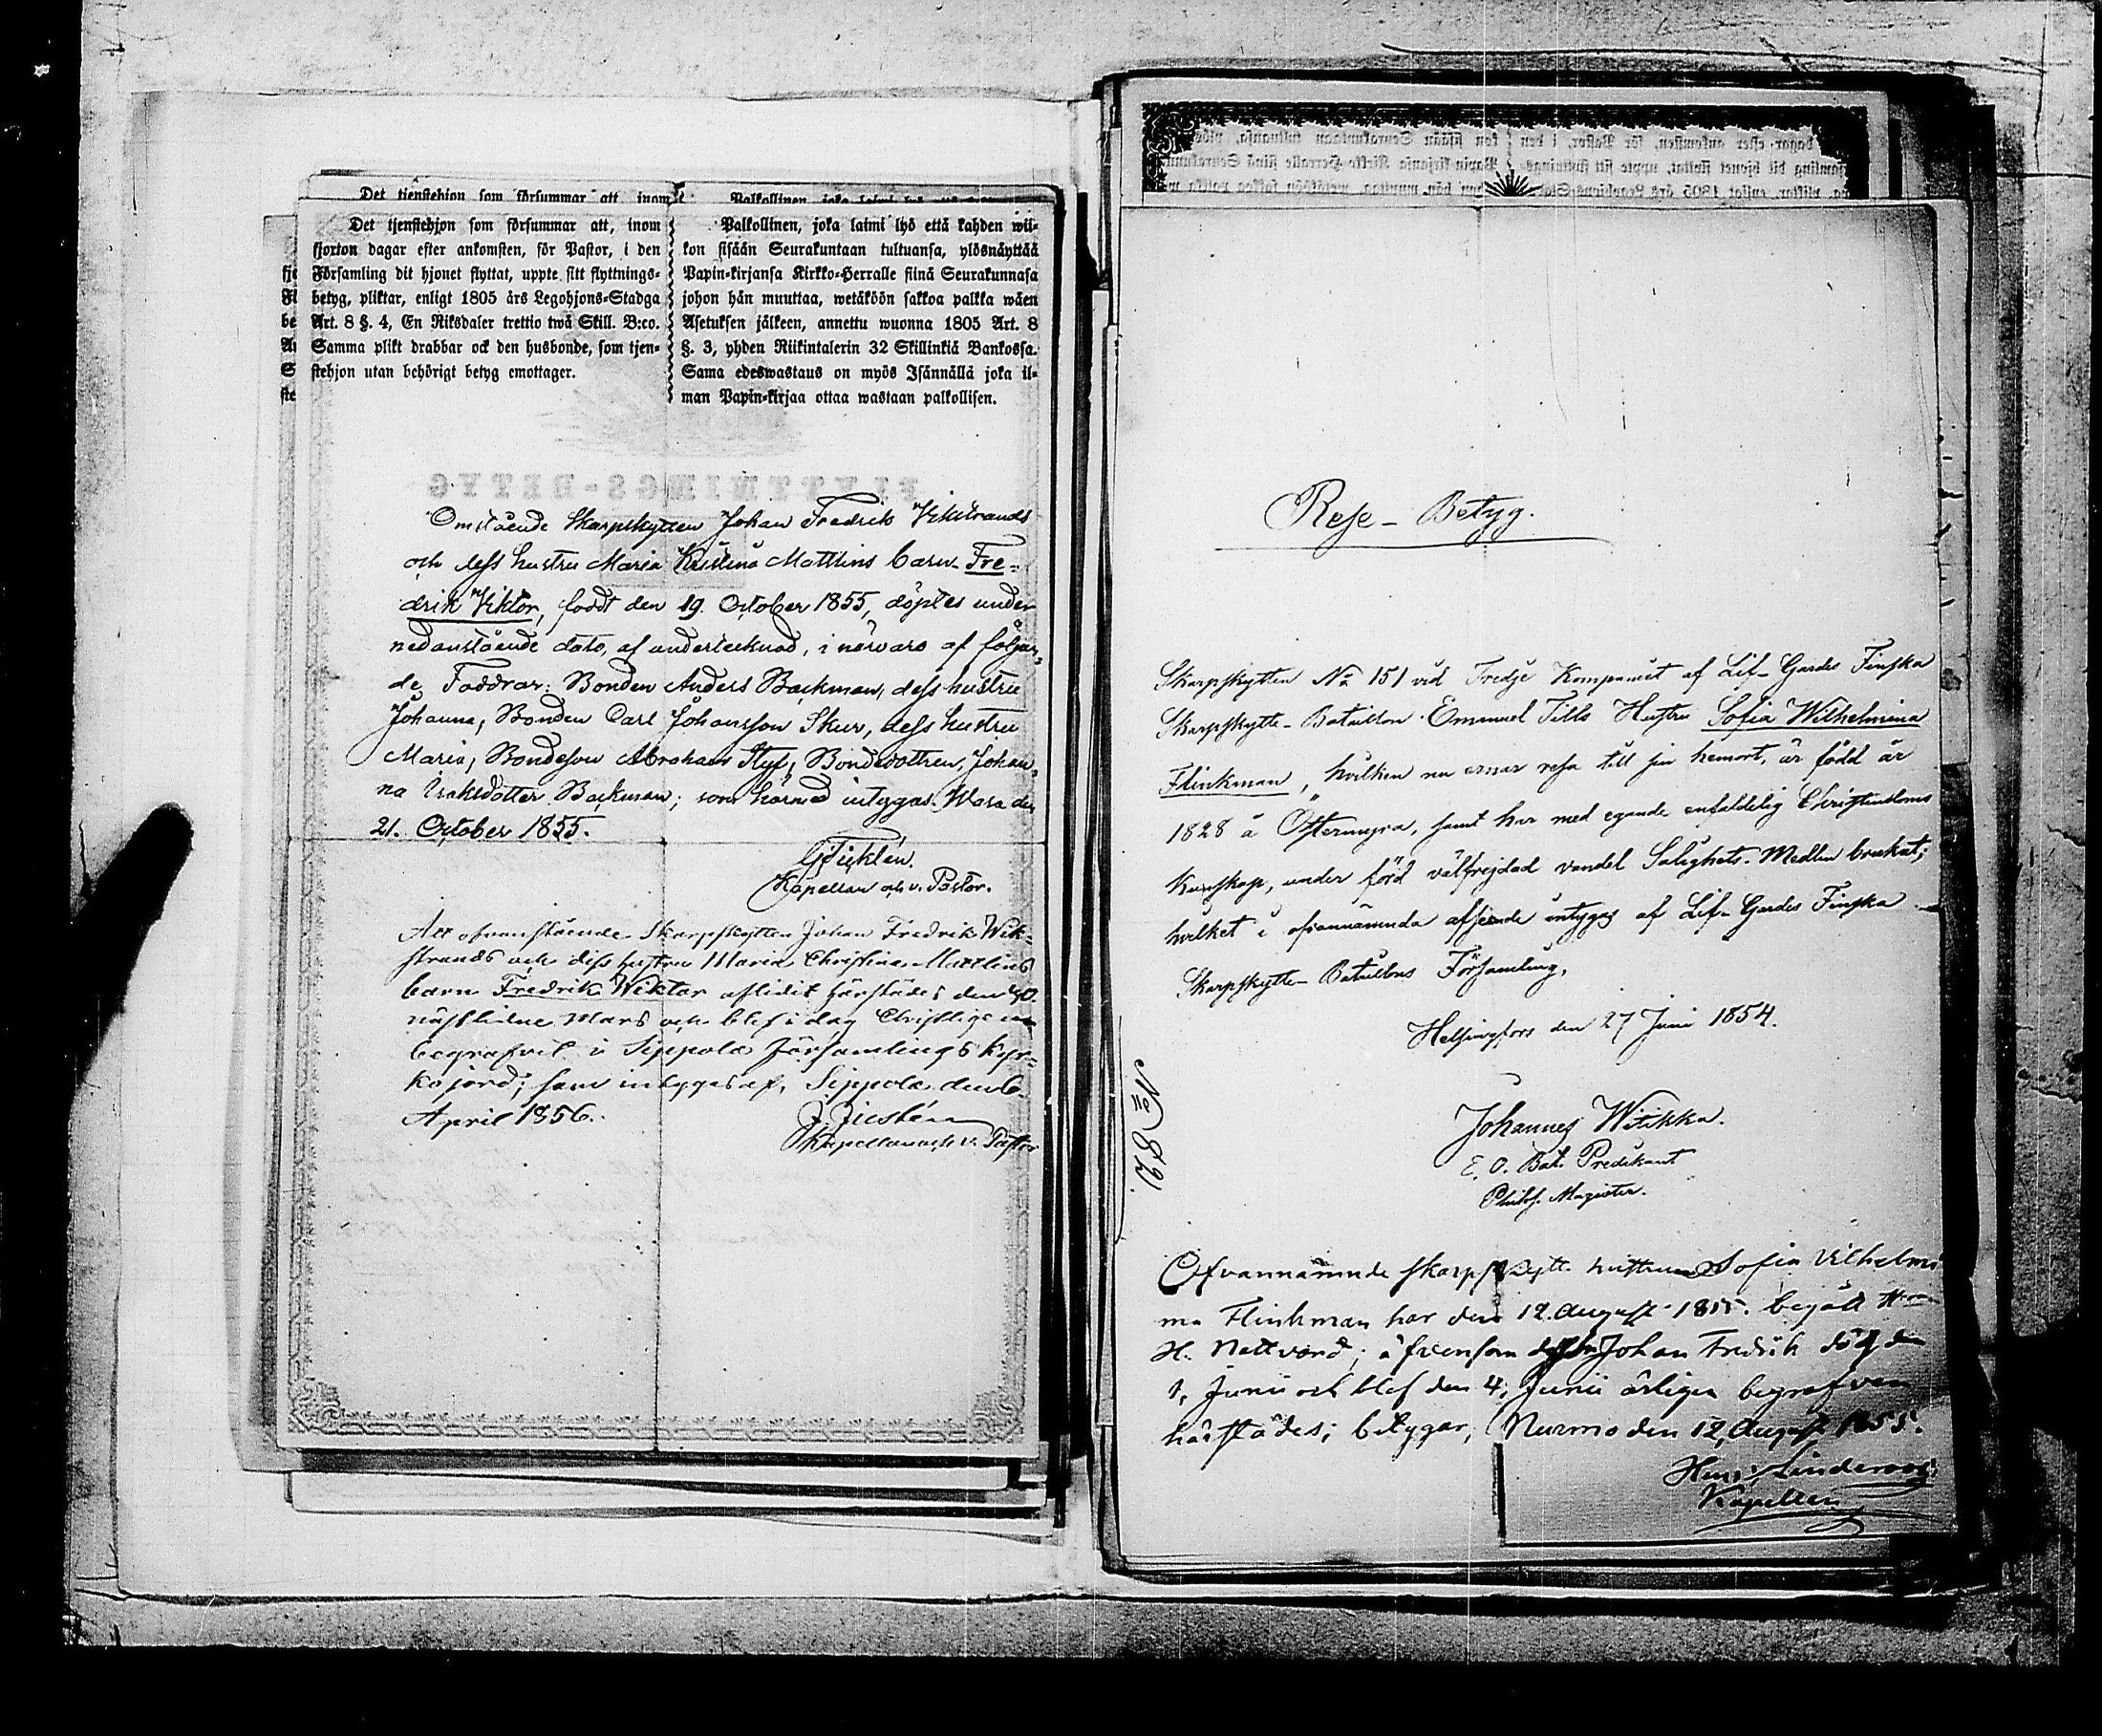 Det tjenstehjon som försummar att, inom
fjorton dagar efter ankomsten, för Pastor, i den
Församling dit hjonet flyttat, uppte sitt flyttnings-
betyg, pliktar, enligt 1805 års Legohjons-Stadga
Art. 8 §. 4, En Riksdaler trettio twå Skill. B:co.
Samma plikt drabbar ock den husbonde, som tjen-
stehjon utan behörigt betyg emottager.
Palkollinen, joka laimi lyö että kahden wii-
kon sisään Seurakuntaan tultuansa, ylösnäyttää
Papin-kirjansa Kirkko-Herralle siinä Seurakunnasa
johon hän muuttaa, wetäköön sakkoa palkka wäen
Asetuksen jälkeen, annettu wuonna 1805 Art. 8
§. 3, yhden Riikintalerin 32 Skillinkiä Bankossa.
Sama edeswastaus on myös Isännällä joka il-
man Papin-kirjaa ottaa wastaan palkollisen.
FLYTTNINGS-BETYG
Omstående Skarpskytten Johan Fredrik Vikstrands
och dess hustru Maria Kristina Mattlins barn Fre-
drik Viktor, född den 19. October 1855, döptes under
nedanstående dato, af undertecknad, i närvaro af följan-
de Faddrar: Bonden Anders Backman, dess hustru
Johanna, Bonden Carl Johansson Skur, dess hustru
Maria, Bondeson Abraham Styf, Bondedottren, Johan-
na Isaksdotter Backman; som härmed intygas. Wasa den
21. October 1855.
Kapellan och v. Pastor.
Att ofvanstående Skarpskytten Johan Fredrik Wik-
strands och dess hustru Maria Christina Mattlins
barn Fredrik Wiktor aflidit härstädes den 30.
nästlidne Mars och blef i dag Christligen
begrafvit i Sippola församlings kyr-
kojord; som intygas af, Sippola den 6.
April 1856.
Kapellan och v. Pastor
Rese-Betyg.
Skarpskytten No 151 vid Tredje Kompaniet af Lif-Gardes Finska
Skarpskytte-Bataillon Emanuel Tills Hustru Sofia Wilhelmina
Flinkman, hvilken nu ernar resa till sin hemort, är född år
1828 i Östermyra, samt har med egande enfaldelig Christendoms
Kunskap, under förd välfrejdad vandel Salighets-Medlen brukat;
hvilket i ofvannämnda afseende intygas af Lif-Gardes Finska
Skarpskytte-Bataillons Församling,
Helsingfors den 27 Juni 1854.
Johannes Witikka.
E. O. Bat. Predikant
Philos. Magister.
No 82.
Ofvannämnde skarpskytt. hustrun Sofia Vilhelmi
na Flinkman har den 12. August 1855. begått
H. Nattvard; äfvensom Johan Fredrik dog den
1, Junii och blef den 4, Junii ärligen begrafven
härstädes; betygar, Nurmo den 12, August 1855.
Linderoos
Kapellan